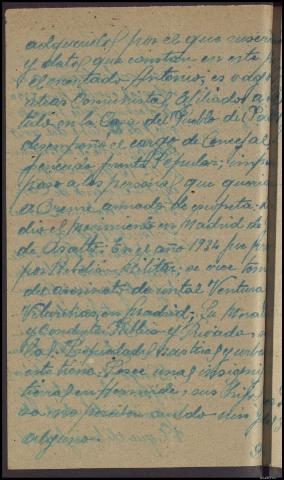 adquiridos por el que suscri
y datos que constan en este p
el encartado Antonio, es de
ideas Comunistas Afiliado a
tulo en la Casa del Pueblo de
desempeño el cargo de Concejal
fenecido frente Popular; imp
paso a las personas que querian
a Orense armado de escopeta;
dio el movimiento en Madrid de
de Asalto. En el año 1934 fue pr
por Rebelion Militar; se cree tom
del asesinato de un tal Ventura
Vilariñas, en Madrid; Su Moral
y conducta Publica y Privada,
Propiedades rusticas y urba
este tiene. Posee unas insigni
tienen en
no
alguno.